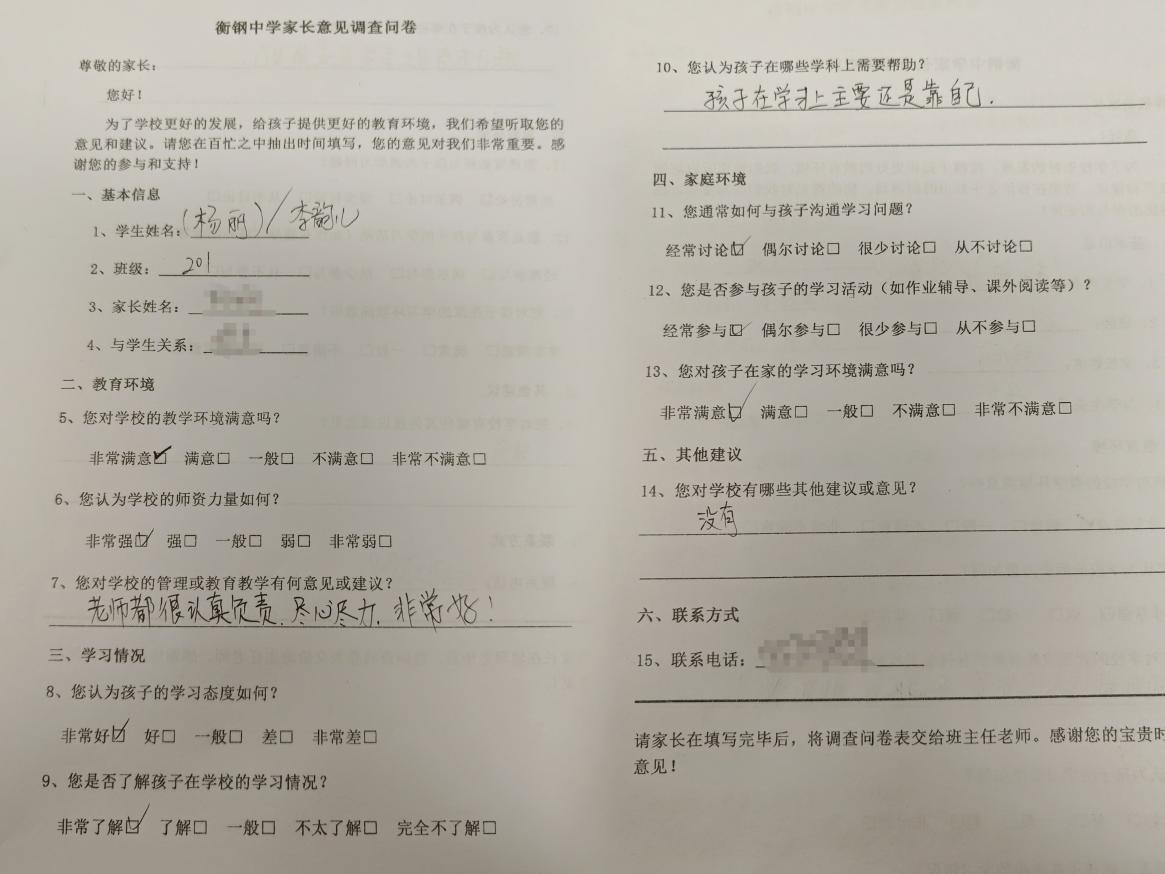 衡钢中学家长意见调查问卷
尊敬的家长：
您好！
为了学校更好的发展，给孩子提供更好的教育环境，我们希望听取您的
意见和建议。请您在百忙之中抽出时间填写，您的意见对我们非常重要。感
谢您的参与和支持！
一、基本信息
1、学生姓名：（杨丽）/李韵心
2、班级：201
3、家长姓名：
4、与学生关系：
二、教育环境
5、您对学校的教学环境满意吗？
非常满意☑ 满意□ 一般□ 不满意□ 非常不满意□
6、您认为学校的师资力量如何？
非常强☑ 强□ 一般□ 弱□ 非常弱□
7、您对学校的管理或教育教学有何意见或建议？
老师都很认真负责.尽心尽力.非常好！
三、学习情况
8、您认为孩子的学习态度如何？
非常好☑ 好□ 一般□ 差□ 非常差□
9、您是否了解孩子在学校的学习情况？
非常了解☑ 了解□ 一般□ 不太了解□ 完全不了解□
10、您认为孩子在哪些学科上需要帮助？
孩子在学习上主要还是靠自己.
四、家庭环境
11、您通常如何与孩子沟通学习问题？
经常讨论☑ 偶尔讨论□ 很少讨论□ 从不讨论□
12、您是否参与孩子的学习活动（如作业辅导、课外阅读等）？
经常参与☑ 偶尔参与□ 很少参与□ 从不参与□
13、您对孩子在家的学习环境满意吗？
非常满意☑ 满意□ 一般□ 不满意□ 非常不满意□
五、其他建议
14、您对学校有哪些其他建议或意见？
没有
六、联系方式
15、联系电话：
请家长在填写完毕后，将调查问卷表交给班主任老师。感谢您的宝贵时
意见！